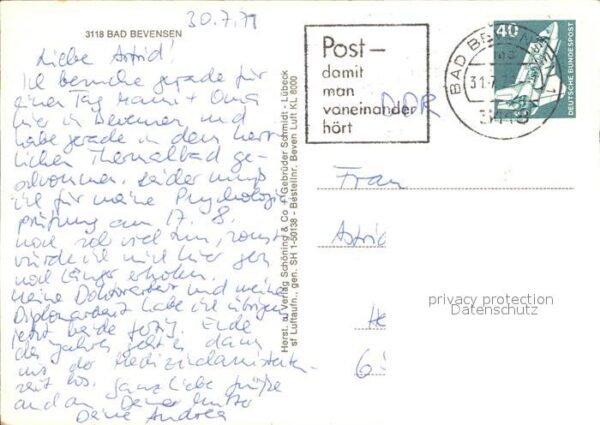 30.7.79
3118 BAD BEVENSEN
Liebe Astrid!
Ich besuche gerade für
einen Tag Mami + Oma
hier in Bevensen und
habe gerade in dem herr-
lichen Thermalbad ge-
schwommen. Leider muß
ich für meine Psychologie
prüfung am 17. 8.
noch so viel tun, sonst
würde ich mich hier gern
noch länger erholen.
Meine Doktorarbeit und meine
Diplomarbeit habe ich übrigens
jetzt beide fertig. Ende
des Jahres geht es dann
los. Ganz liebe Grüße
auch an Deine Mutter
Deine Andrea
Herst. u. Verlag Schöning & Co + Gebrüder Schmidt - Lübeck
sf Luftaufn., gen. SH 1-50138 - Bestellnr. Beven Luft KL 8000
Post-
damit
man
voneinander
hört
BAD BEVENSEN 1
31.7.
3118
40
DEUTSCHE BUNDESPOST
DDR
Frau
Astrid
privacy protection
Datenschutz